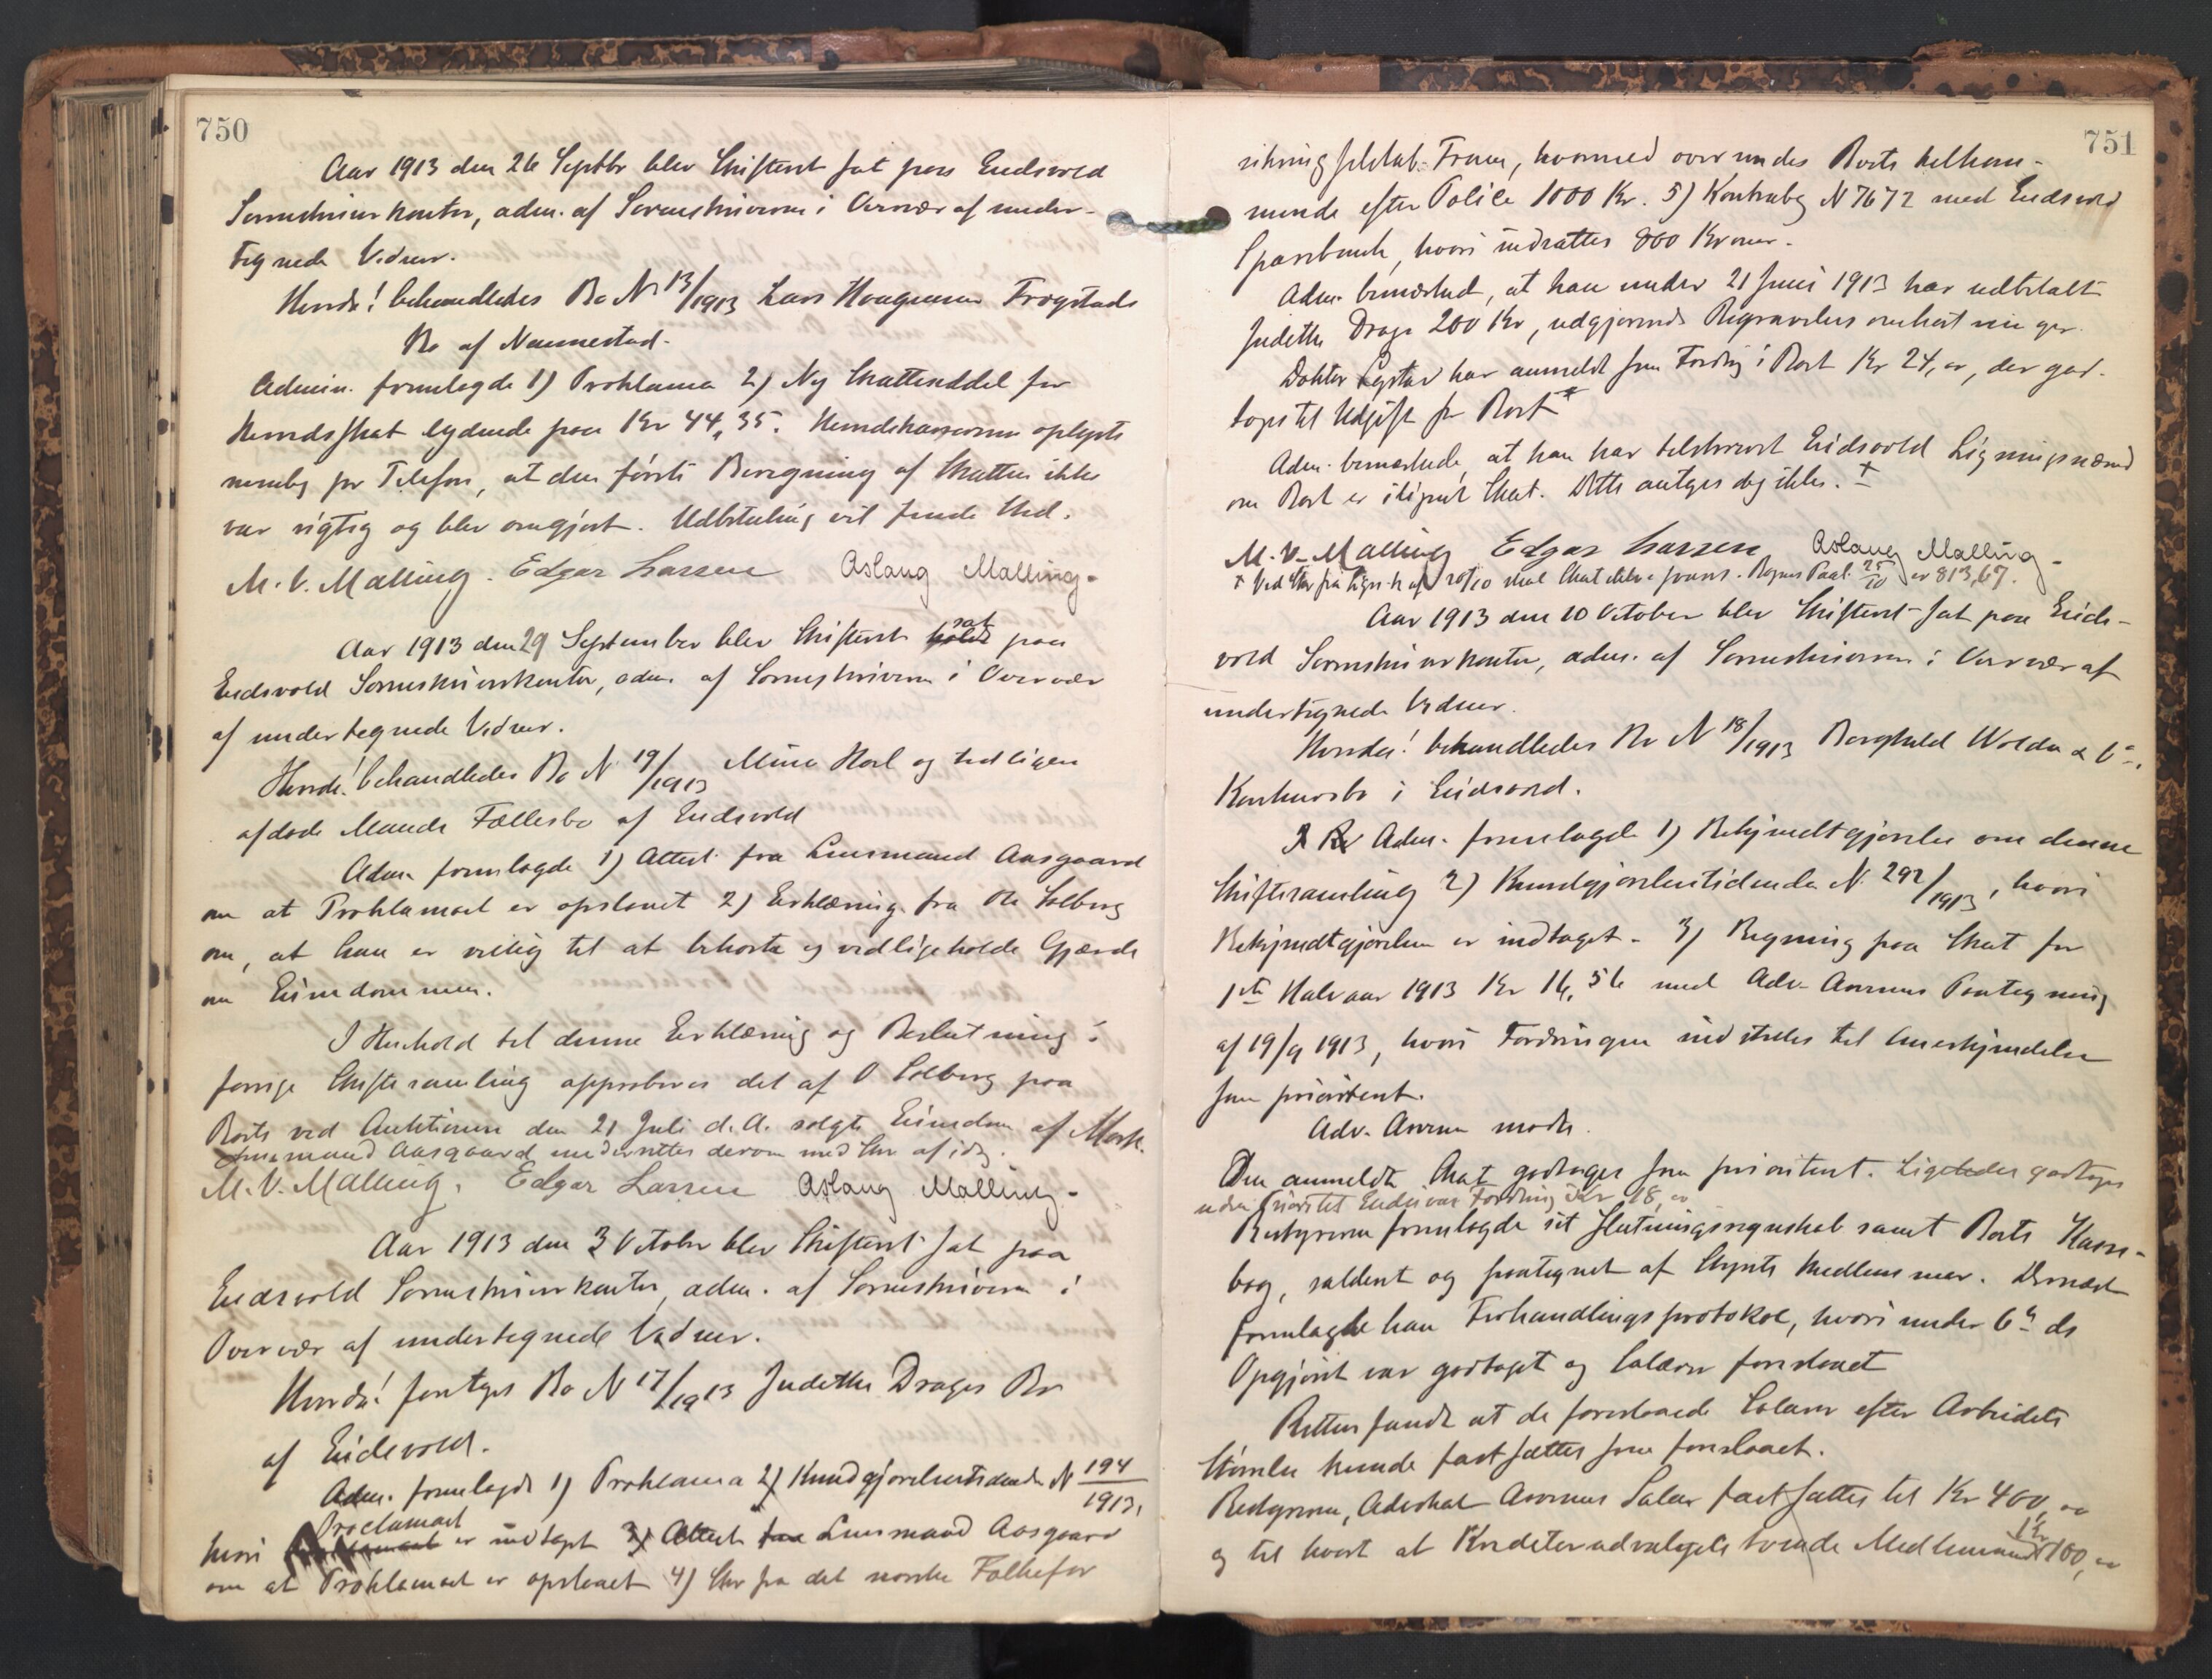 750
Aar 1913 den 26 Septbr blev Skifteret sat paa Eidsvold
Sorenskriverkontor, adm. af Sorenskriveren i Overvær af under-
tegnede Vidner.
Herunder! behandledes Bo N 13/1913 Lars Haagensen Frogstads
Bo af Nannestad.
Admin. fremlagde 1) Proklama 2) Ny Skatteseddel for
Herredsskat lydende paa Kr 44,35. Herredskassereren oplyste
nemlig pr Telefon, at den første Beregning af Skatten ikke
var rigtig og blev omgjort. Udbetaling vil finde Sted.
M. V. Malling. Edgar Larsen Aslaug Malling.
Aar 1913 den 29 September blev Skifteret sat paa
Eidsvold Sorenskriverkontor, adm. af Sorenskriveren i Overvær
af undertegnede Vidner.
Herunder! behandledes Bo N 19/1913 Mina Hoel og tidligere
afdøde Mands Fællesbo af Eidsvold
Adm. fremlagde 1) Attest fra Lensmand Aasgaard
om at Proklamaet er opslaaet 2) Erklæring fra Ole Solberg
om, at han er villig til at bekoste og vedligeholde Gjærde
om Eiendommen.
I Henhold til denne Erklæring og Beslutning i
forrige Skiftesamling approberes det af O Solberg paa
Boets ved Auktionen den 21 Juli d. A. solgte Eiendom af Mork.
Lensmand Aasgaard underrettes derom med Skr af idag.
M. V. Malling. Edgar Larsen Aslaug Malling.
Aar 1913 den 3 October blev Skifteret sat paa
Eidsvold Sorenskriverkontor, adm. af Sorenskriveren i
Overvær af undertegnede Vidner.
Herunder! foretoges Bo N 17/1913 Judithe Drages Bo
af Eidsvold.
Adm. fremlagde 1) Proklama 2) Kundgjørelsestidende N 194/1913,
hvori Proclamaet er indtaget 3) Attest fra Lensmand Aasgaard
om at Proklamaet er opslaaet 4) Skr fra det norske Folkefor
751
sikringsselskab Fram, hvormed oversendes Boets tilkom-
mende efter Police 1000 Kr. 5) Kontrabog N 7672 med Eidsvold
Sparebank, hvori indsattes 800 Kroner.
Adm. bemærked, at han under 21 Juni 1913 har udbetalt
Judithe Drage 200 Kr, udgjørende Begravelsesomkostninger.
Dokter har anmeldt sin Fordring i Boet Kr 24, er, der god-
tages til Udgift for Boet
Adm. bemærkede, at han har tilskrevet Eidsvold Ligningsnævnd
om Boet er ilignet Skat. Dette antages dog ikke. +
M. V. Malling Edgar Larsen Aslaug Malling.
+ Ved Skr fra Lign. k af 20/10 skal Skat ikke svares. Bogens Paal. 25/10 er 813,67.
Aar 1913 den 10 October blev Skifteret sat paa Eids-
vold Sorenskriverkontor, adm. af Sorenskriveren i Overvær af
undertegnede Vidner.
Herunder! behandledes Bo N 18/1913 Borghild Wolda & Co.
Konkursbo i Eidsvold.
Adm. fremlagde 1) Bekjendtgjørelse om denne
Skiftesamling 2) Kundgjørelsestidende N. 292/1913, hvori
Bekjendtgjørelsen er indtaget. 3) Regning paa Skat for
1ste Halvaar 1913 Kr 16,56 med Adv. Paategning
af 19/9 1913, hvori Fordringen indstilles til Anerkjendelse
som prioritert.
Adv. mødte.
Den anmeldte Skat godtages som prioritert. Ligeledes godtages
uden Prioritet Fordring Kr 18,
Bestyreren fremlagde sit Slutningsregnskab samt Boets Kasse-
bog, saldert og paategnet af Styrets Medlemmer. Dernæst
fremlagde han Forhandlingsprotokol, hvori under 6te ds
Opgjøret var godtaget og Salærer foreslaaet
Retten fandt at de foreslaaede Salærer efter Arbeidets
Størrelse kunde fastsættes som foreslaaet.
Bestyreren, Advokat Salær fastsættes til Kr 400,
og til hvert af Kreditorudvalgets tvende Medlemmer Kr 100,